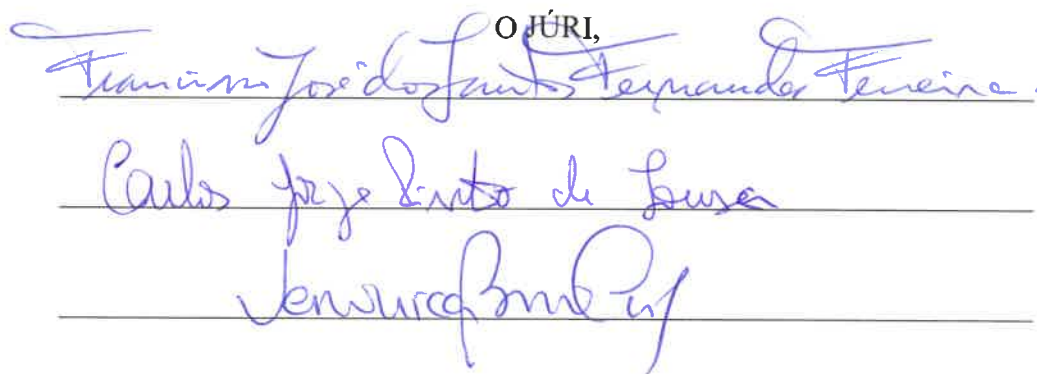 O JÚRI,
Francisco José dos Santos Fernandes Ferreira
Carlos Jorge Pinto de Sousa